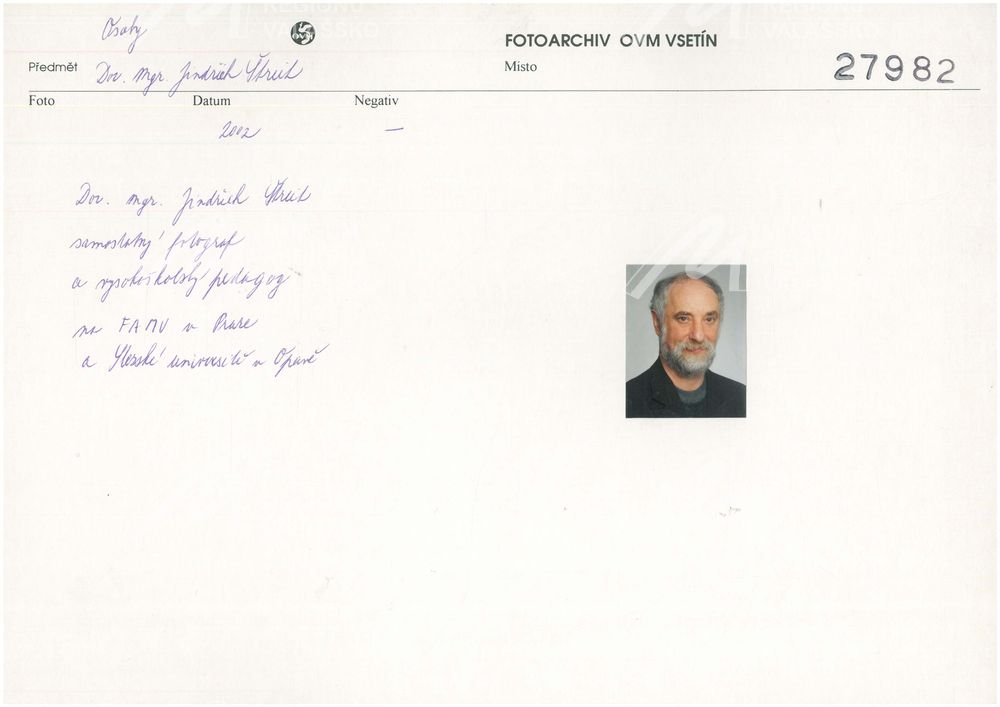 Osoby
OVM
FOTOARCHIV OVM VSETÍN
Předmět Doc. mgr. Jindřich Štreit
Místo
27982
Foto Datum Negativ
2002 —
Doc. mgr. Jindřich Štreit
samostatný fotograf
a vysokoškolský pedagog
na FAMU v Praze
a Slezské universitě v Opavě